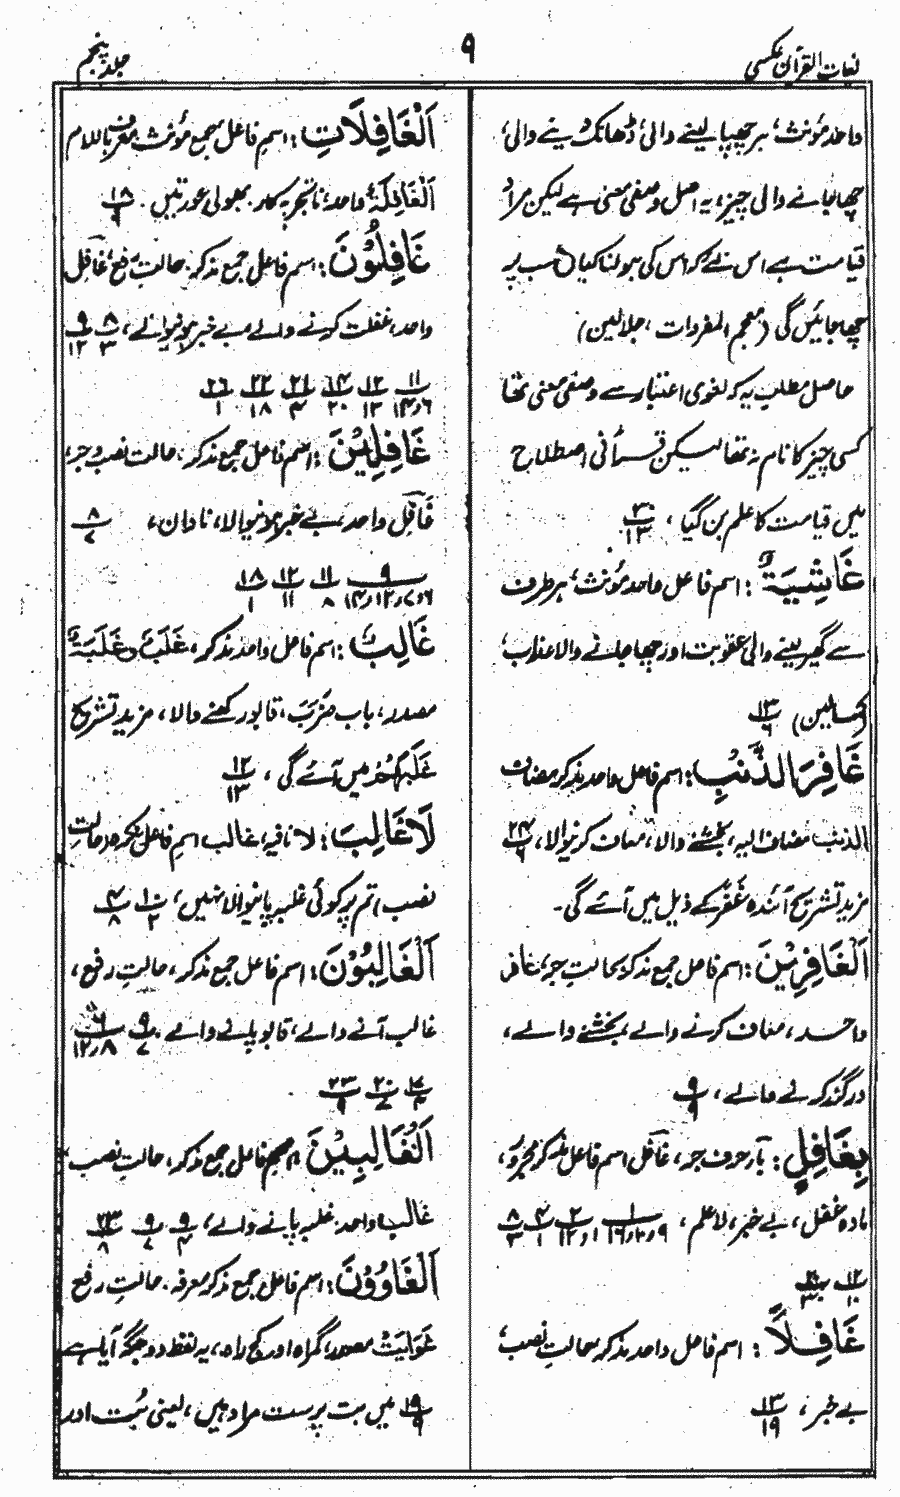 لغات القرآن عکسی
۹
جلد پنجم
واحد مؤنث، ہر چھپا لینے والی، ڈھانک دینے والی،
چھا جانے والی چیز، یہ اصل وصفی معنی ہے لیکن مراد
قیامت ہے اس لئے کہ اس کی ہولناکیاں سب پر
چھا جائیں گی (معجم المفردات، جلالین)
حاصل مطلب یہ کہ لغوی اعتبار سے وصفی معنی تھا
کسی چیز کا نام نہ تھا لیکن قرآنی اصطلاح
میں قیامت کا علم بن گیا، ۳۰/۱۳
غَاشِيَةٌ : اسم فاعل واحد مؤنث، ہر طرف
سے گھیر لینے والی عقوبت اور چھا جانے والا عذاب،
(جلالین) ۱۳/۶
غَافِرِ الذَّنْبِ: اسم فاعل واحد مذکر مضاف
الذنب مضاف الیہ، بخشنے والا، معاف کرنیوالا، ۲۴/۶
مزید تشریح آئندہ غَفَرَ کے ذیل میں آئے گی۔
اَلْغَافِرِيْنَ: اسم فاعل جمع مذکر بحالتِ جر، غافر
واحد، معاف کرنے والے، بخشنے والے،
درگذر کرنے والے، ۹/۹
بِغَافِلٍ: بآ حرف جر، غافل اسم فاعل مذکر مجرور،
مادہ غفل، بے خبر، لاعلم، ۱/۹و۱۰و۱۶ ۲/۱و۱۲ ۴/۱ ۸/۲
۱۲/۱۰ ۲۰/۳
غَافِلًا : اسم فاعل واحد مذکر بحالتِ نصب،
بے خبر، ۱۳/۱۹
اَلْغَافِلَاتِ: اسم فاعل جمع مؤنث معرف باللام
اَلْغَافِلَةُ واحد، ناتجربہ کار، بھولی عورتیں۔ ۱۸/۹
غَافِلُوْنَ: اسم فاعل جمع مذکر۔ حالتِ رفع، غافل
واحد، غفلت کرنے والے بے خبر ہونیوالے، ۸/۳ ۹/۱۲
۱۱/۶و۱۴ ۱۲/۱۳ ۱۴/۲۰ ۲۱/۴ ۲۲/۱۸ ۲۶/۱
غَافِلِيْنَ: اسم فاعل جمع مذکر۔ حالت نصب و جر،
غَافِل واحد، بے خبر ہونیوالا، نادان، ۸/۷
۹/۶و۷و۱۲و۱۴ ۱۱/۸ ۱۲/۱۱ ۱۸/۱
غَالِبٌ: اسم فاعل واحد مذکر، غَلَبٌ و غَلَبَةٌ
مصدر، باب ضَرَبَ، قابو رکھنے والا، مزید تشریح
غَلَبَهُمْ میں آئے گی، ۱۲/۱۳
لَا غَالِبَ: لا نافیہ، غالب اسم فاعل نکرہ (حالتِ
نصب) تم پر کوئی غلبہ پانیوالا نہیں، ۱۰/۲ ۴/۸
اَلْغَالِبُوْنَ: اسم فاعل جمع مذکر، حالتِ رفع،
غالب آنے والے، قابو پانے والے۔ ۹/۷ ۶/۸و۱۲
۱۷/۴ ۲۰/۷ ۲۳/۹
اَلْغَالِبِيْنَ اسم فاعل جمع مذکر، حالتِ نصب،
غالب واحد۔ غلبہ پانے والے، ۹/۴ ۹/۷ ۲۳/۸
اَلْغَاوُوْنَ: اسم فاعل جمع مذکر معرفہ۔ حالتِ رفع
غَوَایَتٌ مصدر، گمراہ اور کج راہ، یہ لفظ دو جگہ آیا ہے
۱۹/۹ میں بت پرست مراد ہیں، یعنی بُت اور